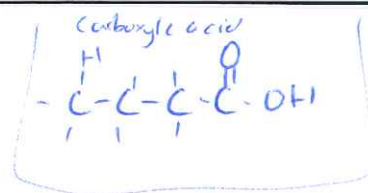 Carboxyle acid
H O
- C - C - C - C - OH